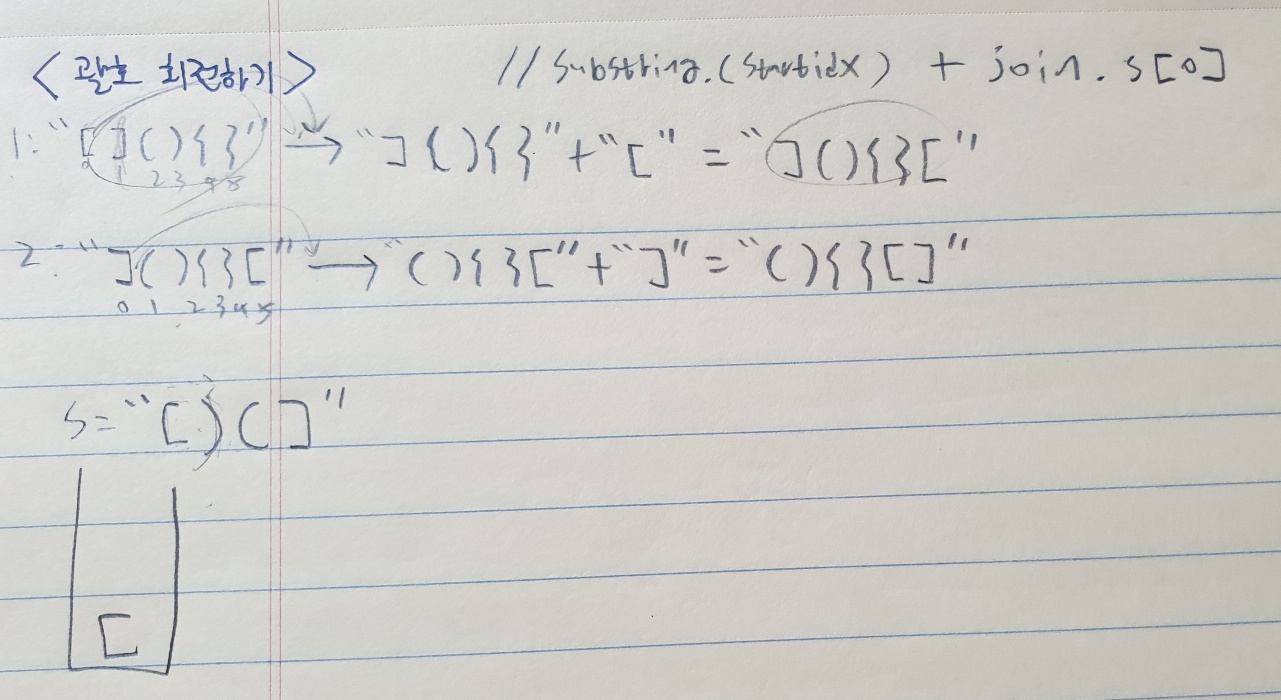 <괄호 회전하기> // Substring.(startidx) + join. s[0]
1: "[](){}" → "](){}" + "[" = "](){}["
0 1 2 3 4 5
2: "](){}[" → "(){}[" + "]" = "(){}[]"
0 1 2 3 4 5
s= "[)(]"
[